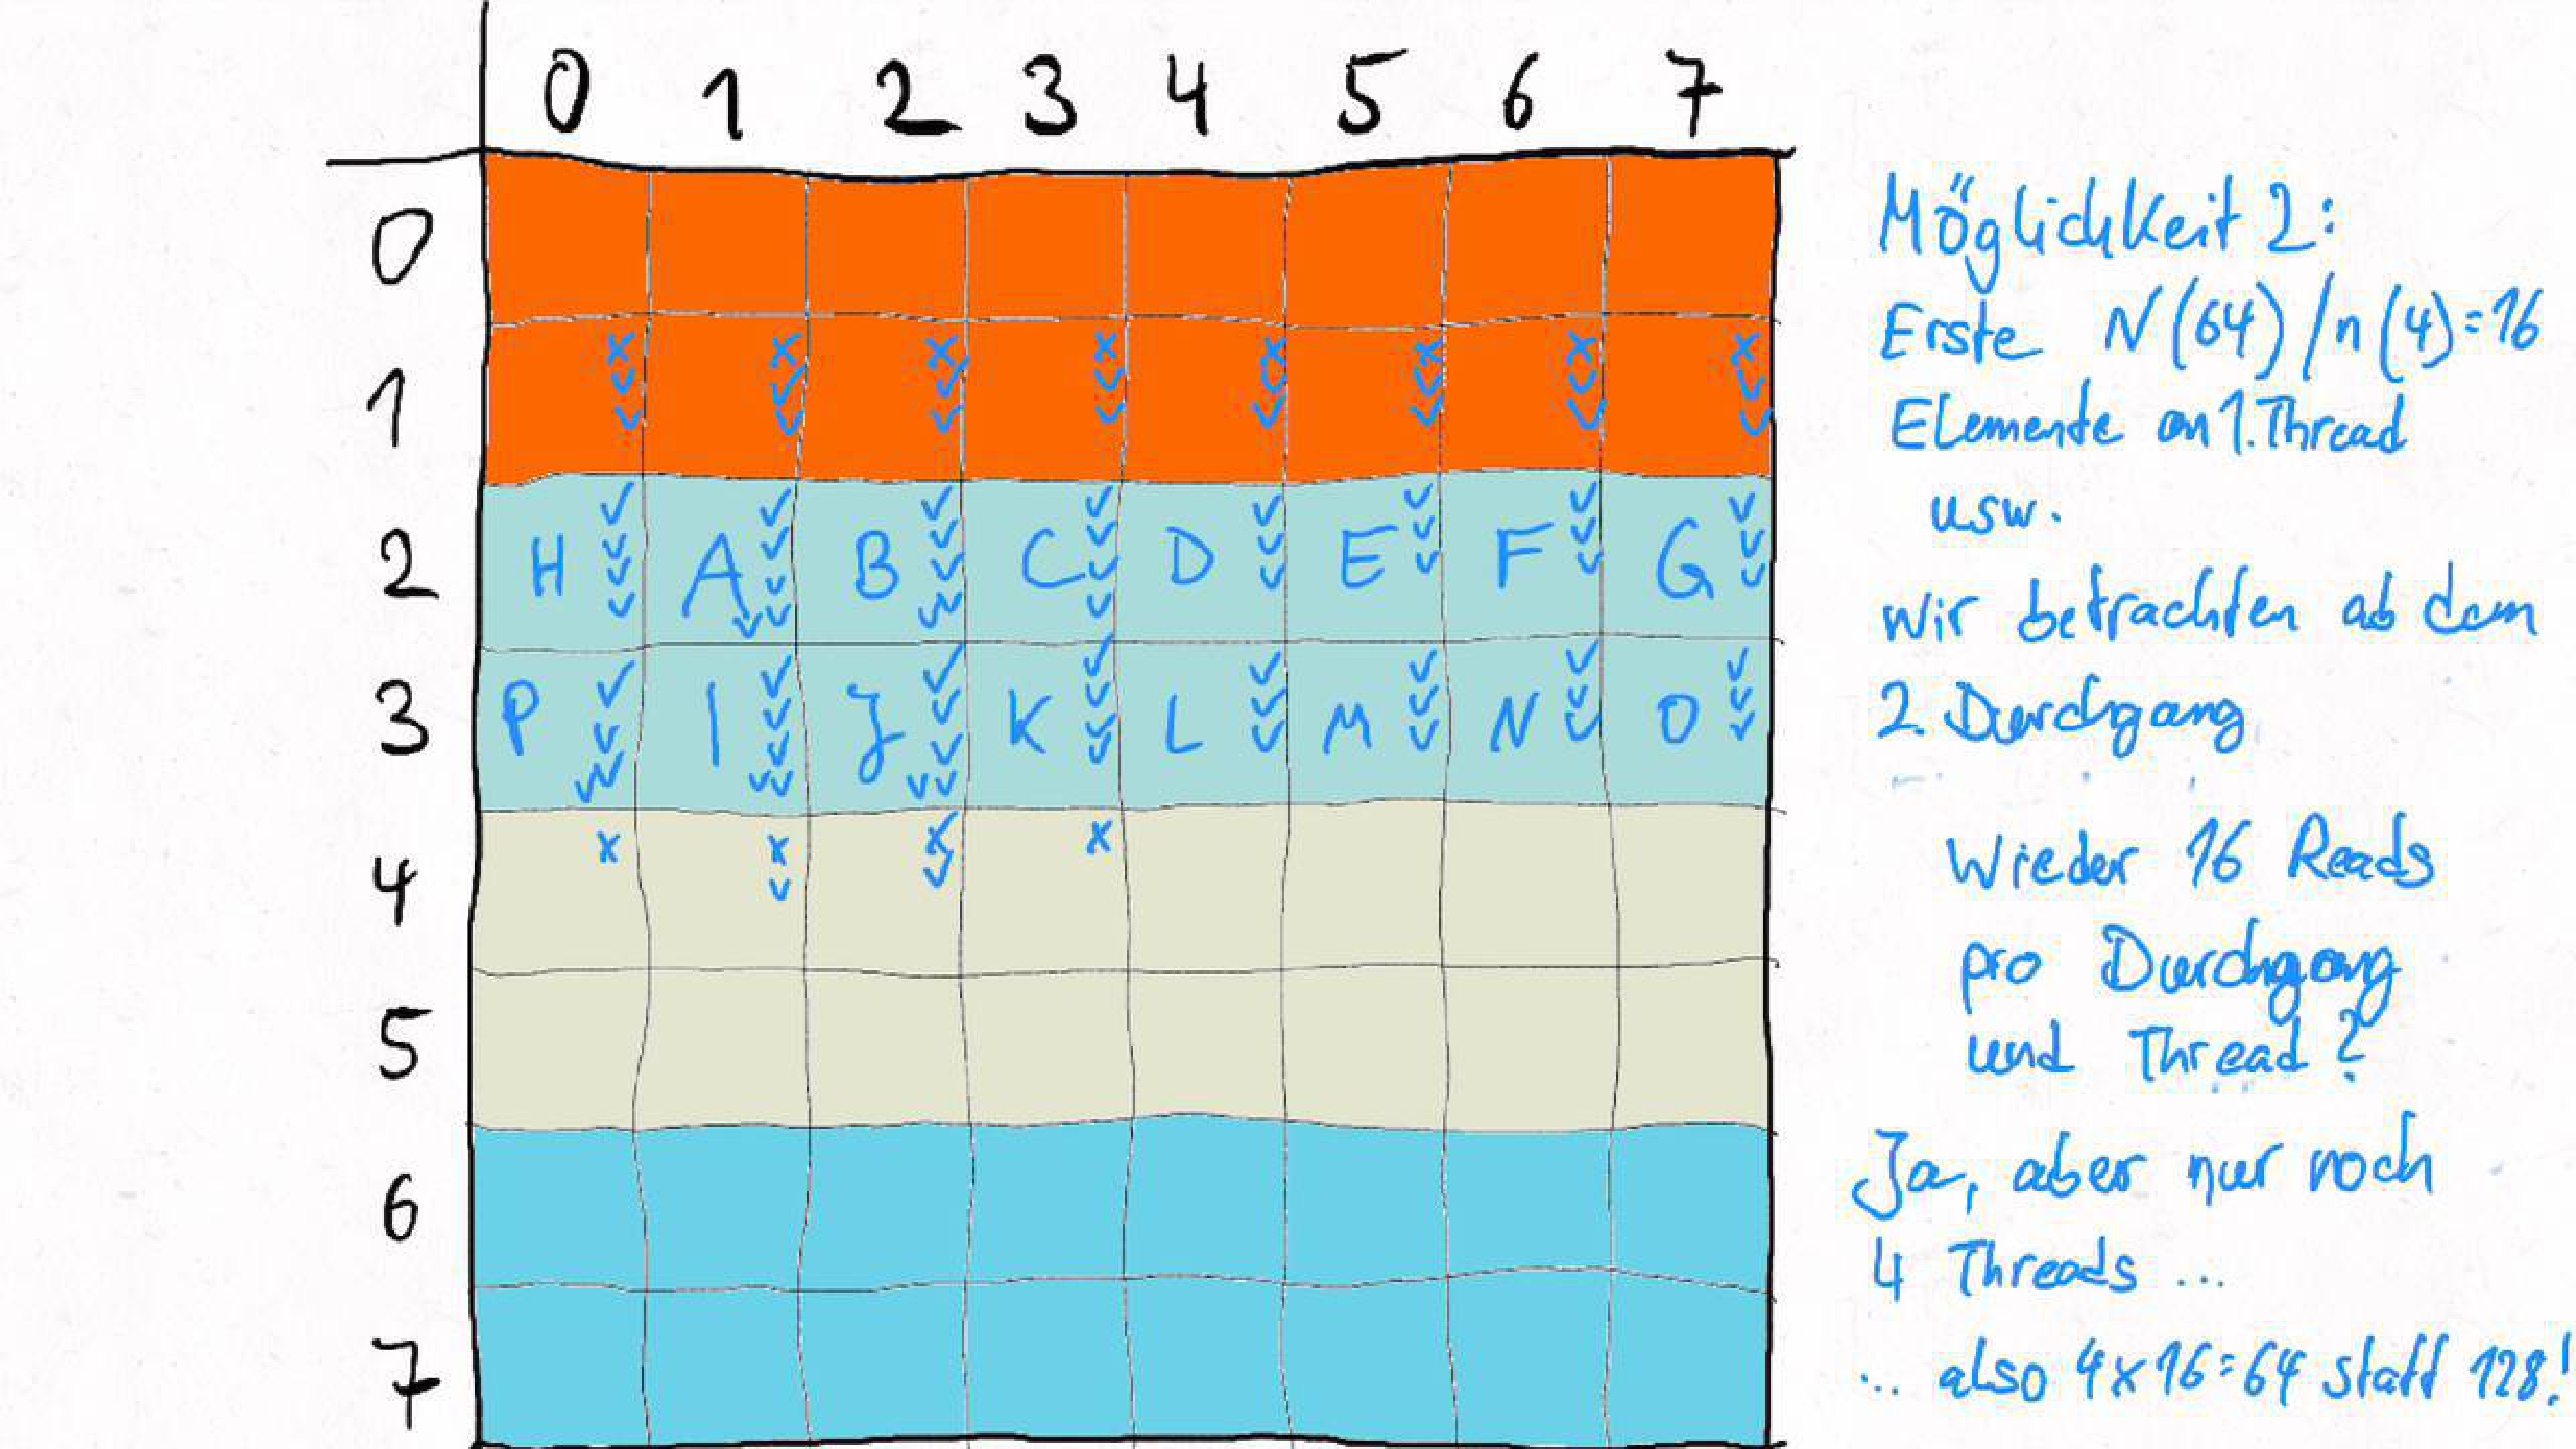 0 1 2 3 4 5 6 7
0
1
2 H A B C D E F G
3 P I J K L M N O
4
5
6
7
Möglichkeit 2:
Erste N(64)/n(4)=16
Elemente an 1. Thread
usw.
Wir betrachten ab dem
2. Durchgang
Wieder 16 Reads
pro Durchgang
und Thread?
Ja, aber nur noch
4 Threads ...
... also 4x16=64 statt 128!